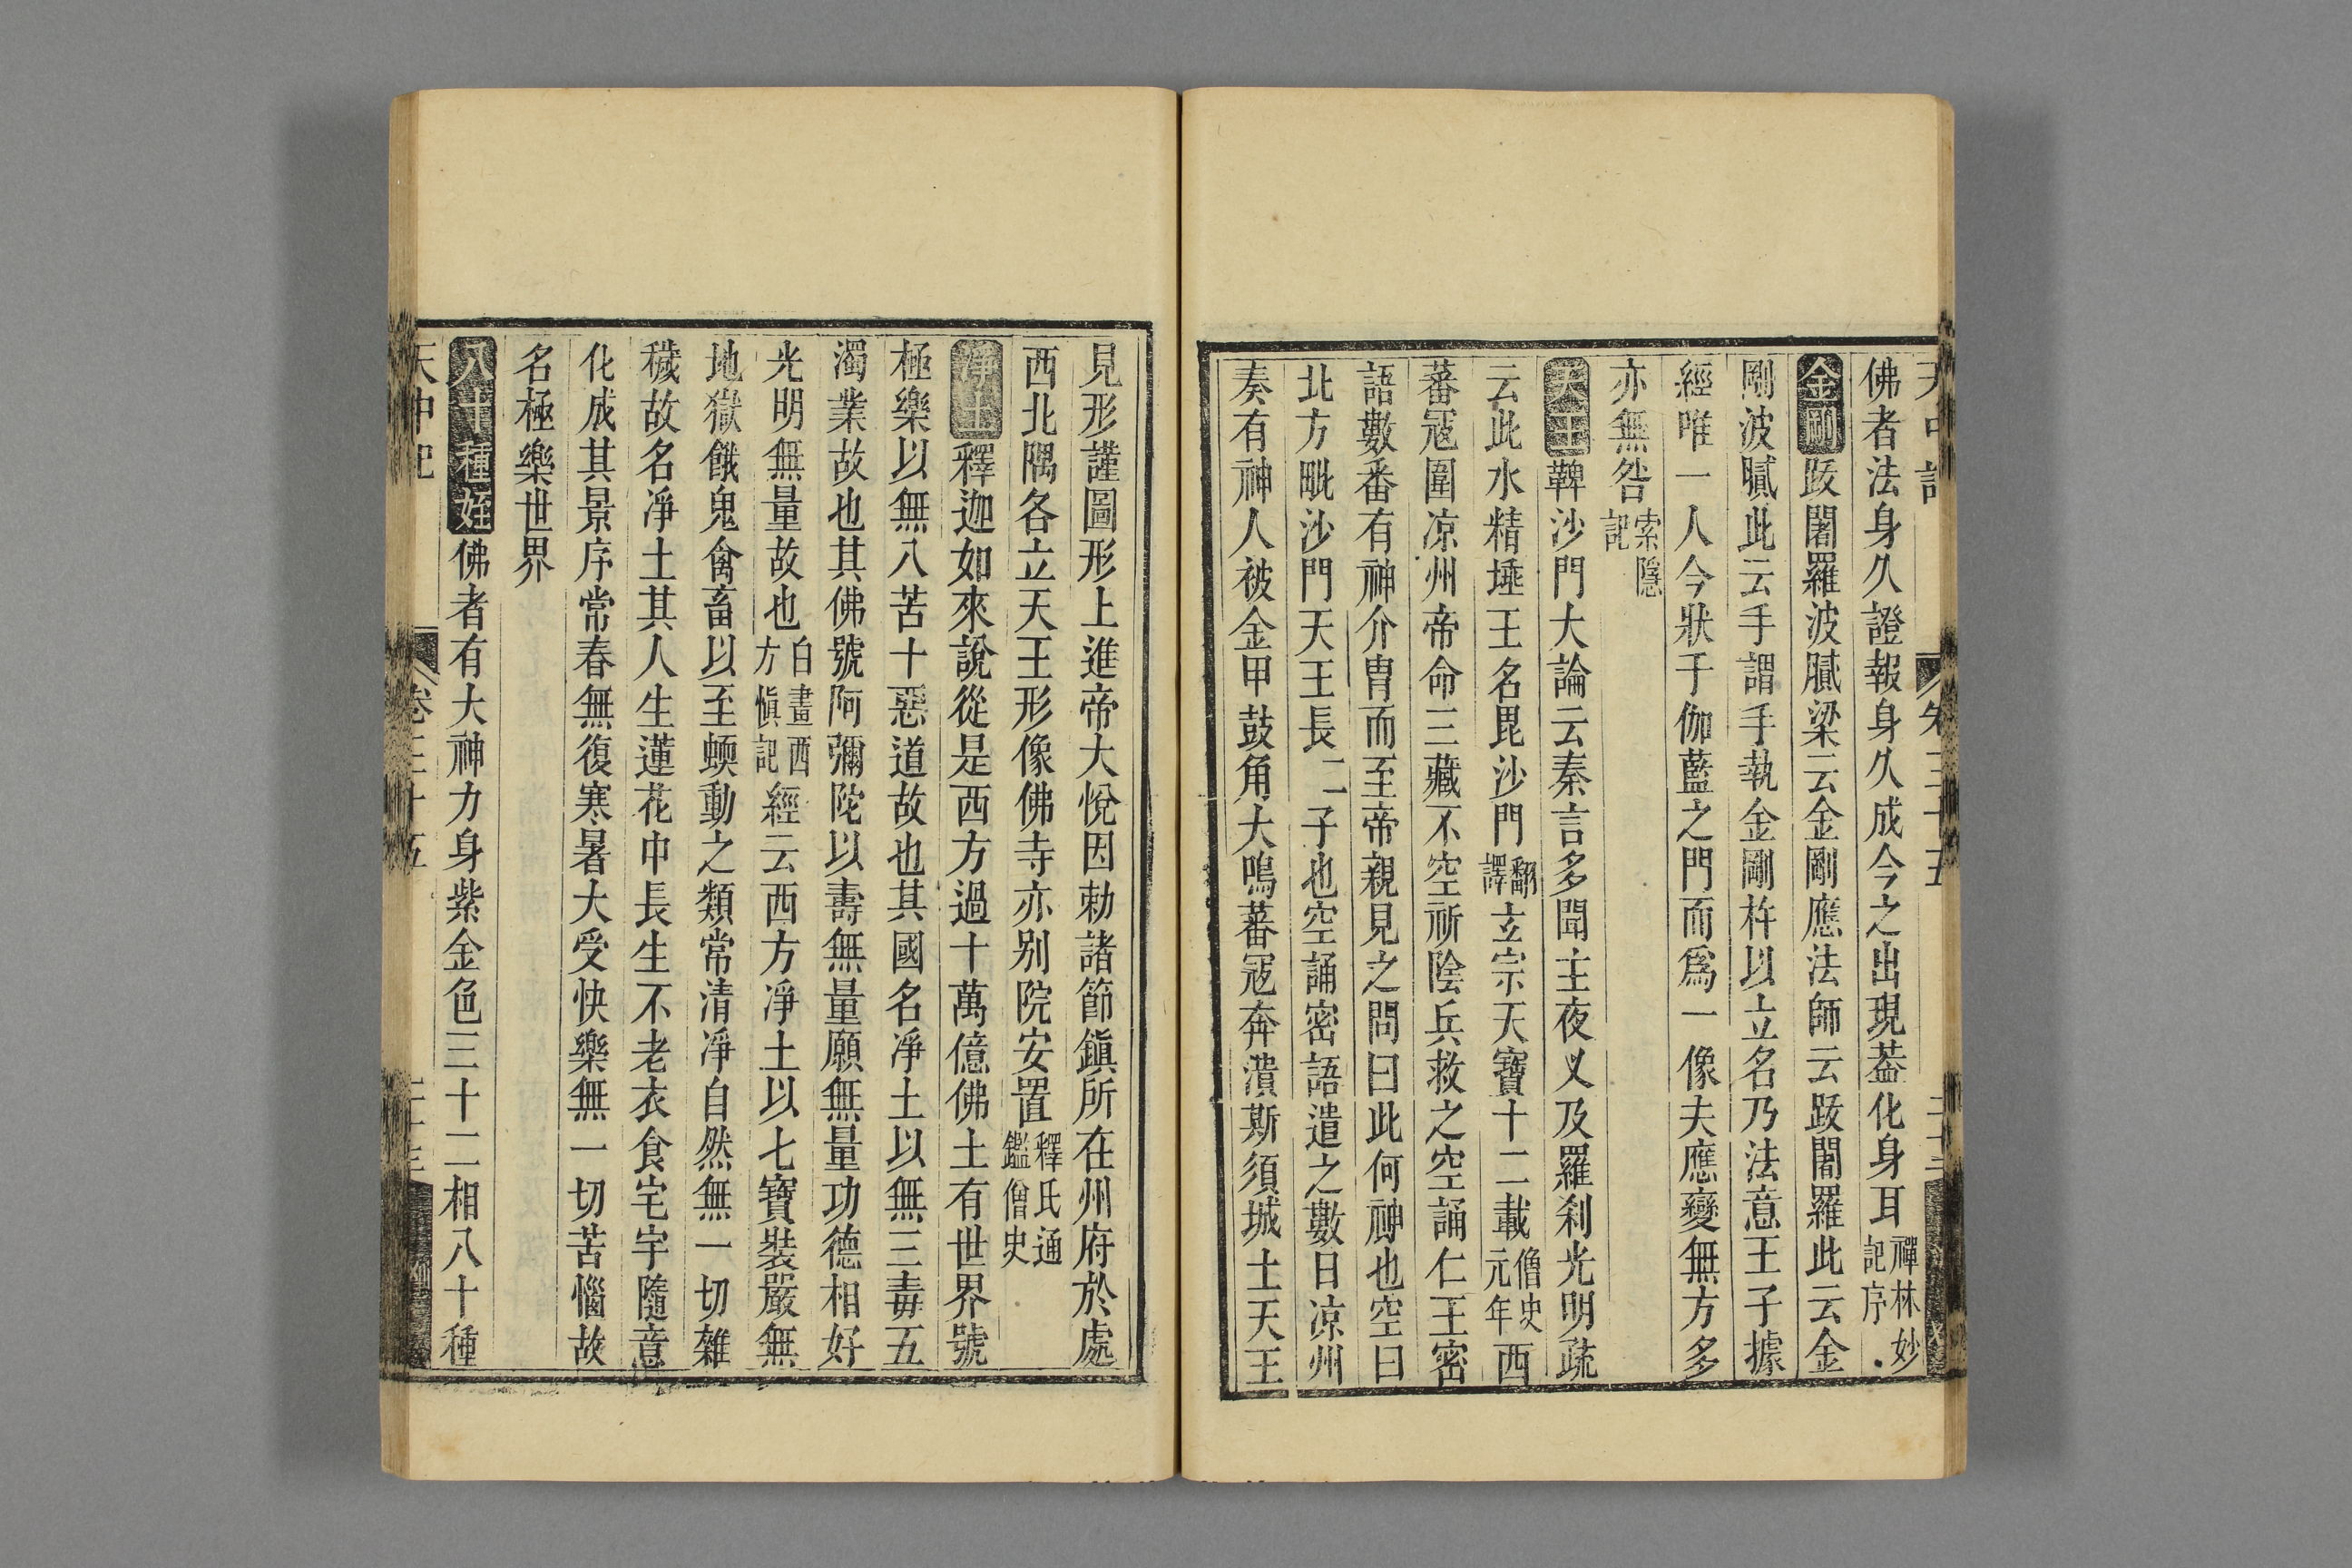 天中記 卷三十五
佛者法身久證報身久成今之出現葢化身耳禪林妙記序
金剛 跋闍羅波膩梁云金剛應法師云跋闍羅此云金
剛波膩此云手謂手執金剛杵以立名乃法意王子據
經唯一人今狀于伽藍之門而爲一像夫應變無方多
亦無咎索隱記
天王 鞞沙門大論云秦言多聞主夜叉及羅刹光明疏
云此水精埵王名毘沙門翻譯玄宗天寶十二載僧史元年西
蕃冦圍凉州帝命三藏不空祈陰兵救之空誦仁王密
語數番有神介胄而至帝親見之問曰此何神也空曰
北方毗沙門天王長二子也空誦密語遣之數日凉州
奏有神人被金甲鼓角大鳴蕃冦奔潰斯須城上天王
見形謹圖形上進帝大悅因勅諸節鎭所在州府於處
西北隅各立天王形像佛寺亦别院安置釋氏通鑑僧史
淨土 釋迦如來說從是西方過十萬億佛土有世界號
極樂以無八苦十惡道故也其國名凈土以無三毒五
濁業故也其佛號阿彌陀以壽無量願無量功德相好
光明無量故也白畫西方愼記經云西方凈土以七寶裝嚴無
地獄餓鬼禽畜以至蝡動之類常清凈自然無一切雜
穢故名凈土其人生蓮花中長生不老衣食宅宇隨意
化成其景序常春無復寒暑大受快樂無一切苦惱故
名極樂世界
八十種好 佛者有大神力身紫金色三十二相八十種
天中記 卷三十五